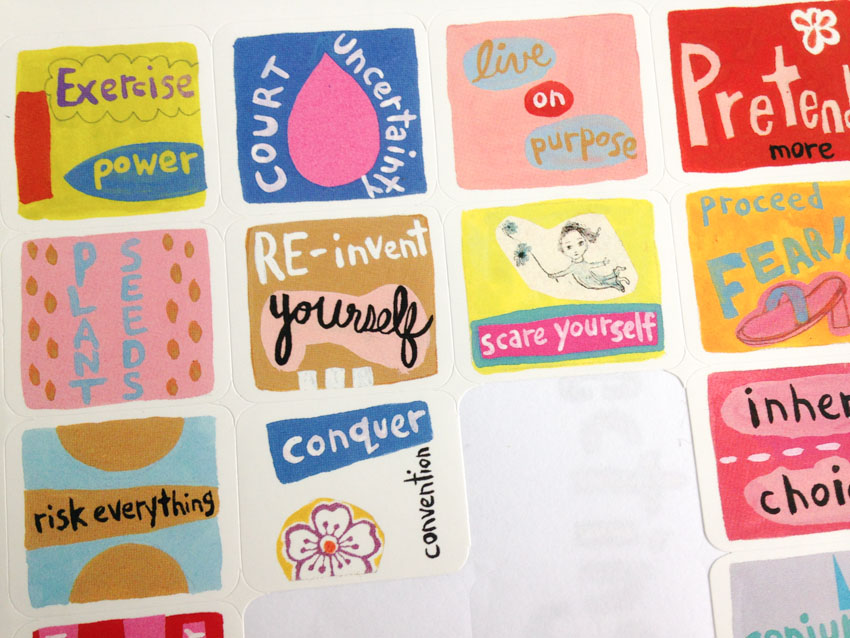 Exercise
power
COURT
uncertainty
live
on
purpose
more
PLANT
SEEDS
RE-invent
yourself
scare yourself
proceed
risk everything
conquer
convention